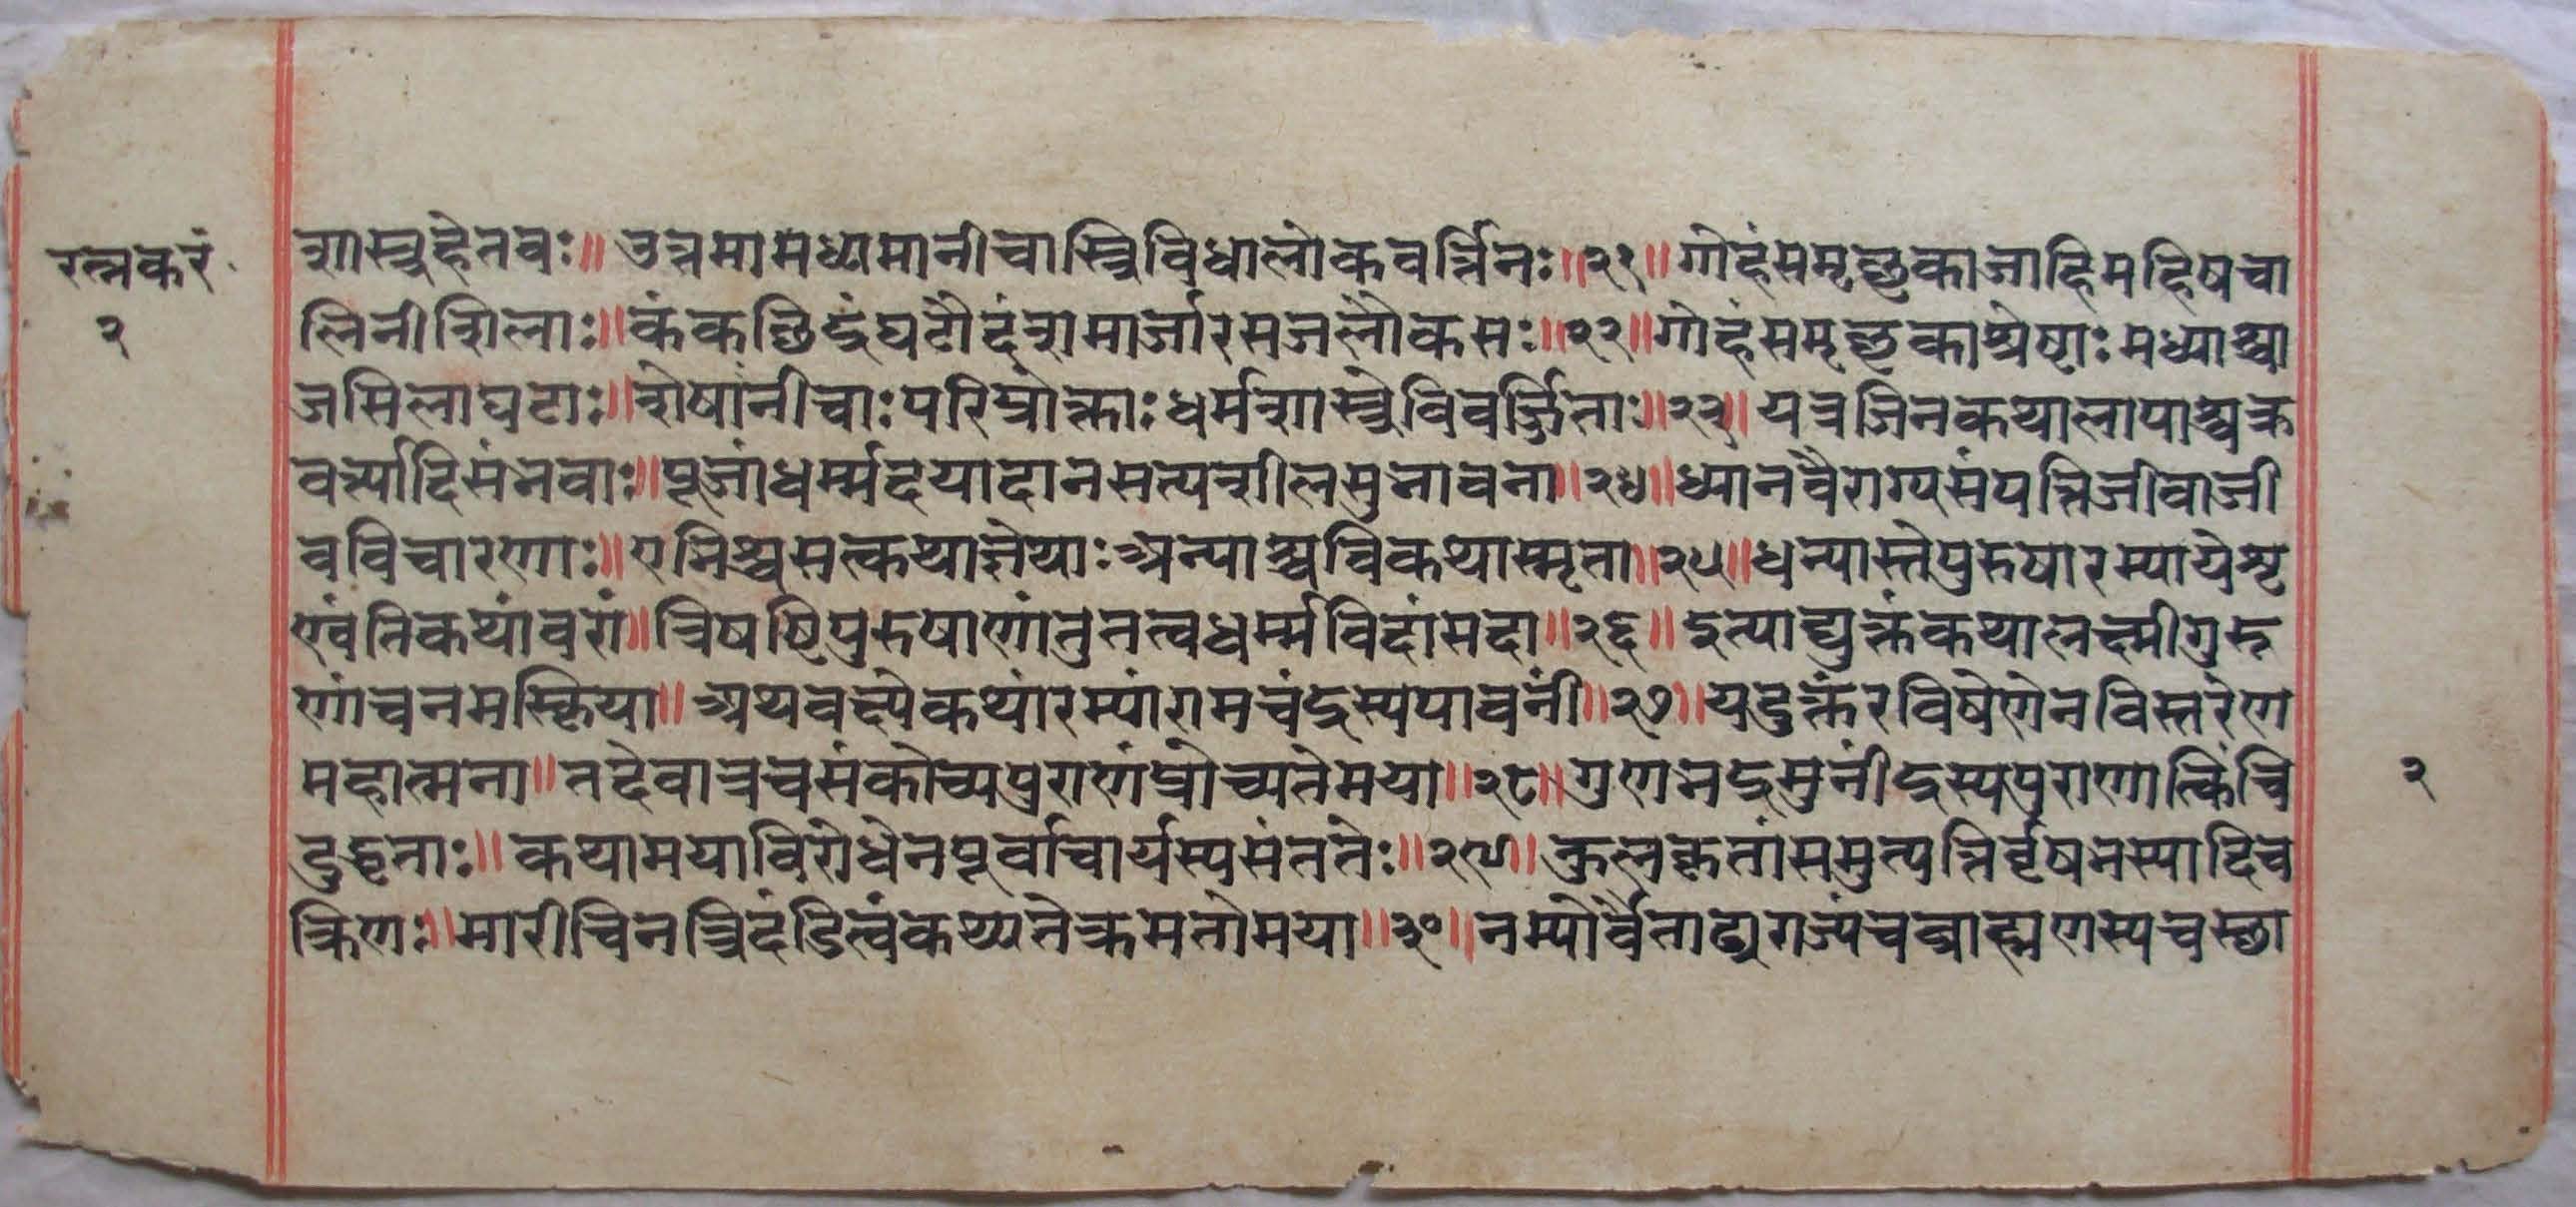 रत्नकरं
२
शास्त्रहेतवः॥ उत्तमामध्यमानीचास्त्रिविधालोकवर्त्तिनः॥२१॥ गोहंसमृछुकाजाहिमहिषचा
लिनीशिलाः॥ कंकछिद्रघटौदंशमार्जारसजलौकसः॥२२॥ गोहंसमृछुकाश्रेष्टाः मध्याश्चा
जसिलाघटाः॥ शेषांनीचाः परिप्रोक्ताः धर्मशास्त्रेविवर्ज्जिताः॥२३॥ यत्रजिनकथालापाश्चक्र
वर्त्यादिसंभवाः॥ पूजांधर्म्मदयादानसत्यशीलसुभावना॥२४॥ ध्यानवैराग्यसंपत्तिजीवाजी
वविचारणाः॥ एभिश्चसत्कथाज्ञेयाः अन्याश्चविकथास्मृता॥२५॥ धन्यास्तेपुरुषारम्यायेशृ
ण्वंतिकथांवरां॥ त्रिषष्टिपुरुषाणांतुतत्वधर्म्मविदांसदा॥२६॥ इत्याद्युक्तंकथालक्ष्मीगुरू
णांचनमस्क्रिया॥ अथवक्ष्येकथांरम्यांरामचंद्रस्यपावनीं॥२७॥ यदुक्तंरविषेणेनविस्तरेण
महात्मना॥ तदेवात्रचसंकोच्यपुराणंप्रोच्यतेमया॥२८॥ गुणभद्रमुनींद्रस्यपुराणात्किंचि
दुद्धृताः॥ कथामयाविरोधेनपूर्वाचार्यस्यसंततेः॥२९॥ कुलकृतांसमुत्पत्तिर्वृषभस्यादिच
क्रिणः॥ मारीचिनस्त्रिदंडित्वंकथ्यतेक्रमतोमया॥३०॥ नम्योर्वैताढ्यराज्यंचब्राह्मणस्यचस्छा
२